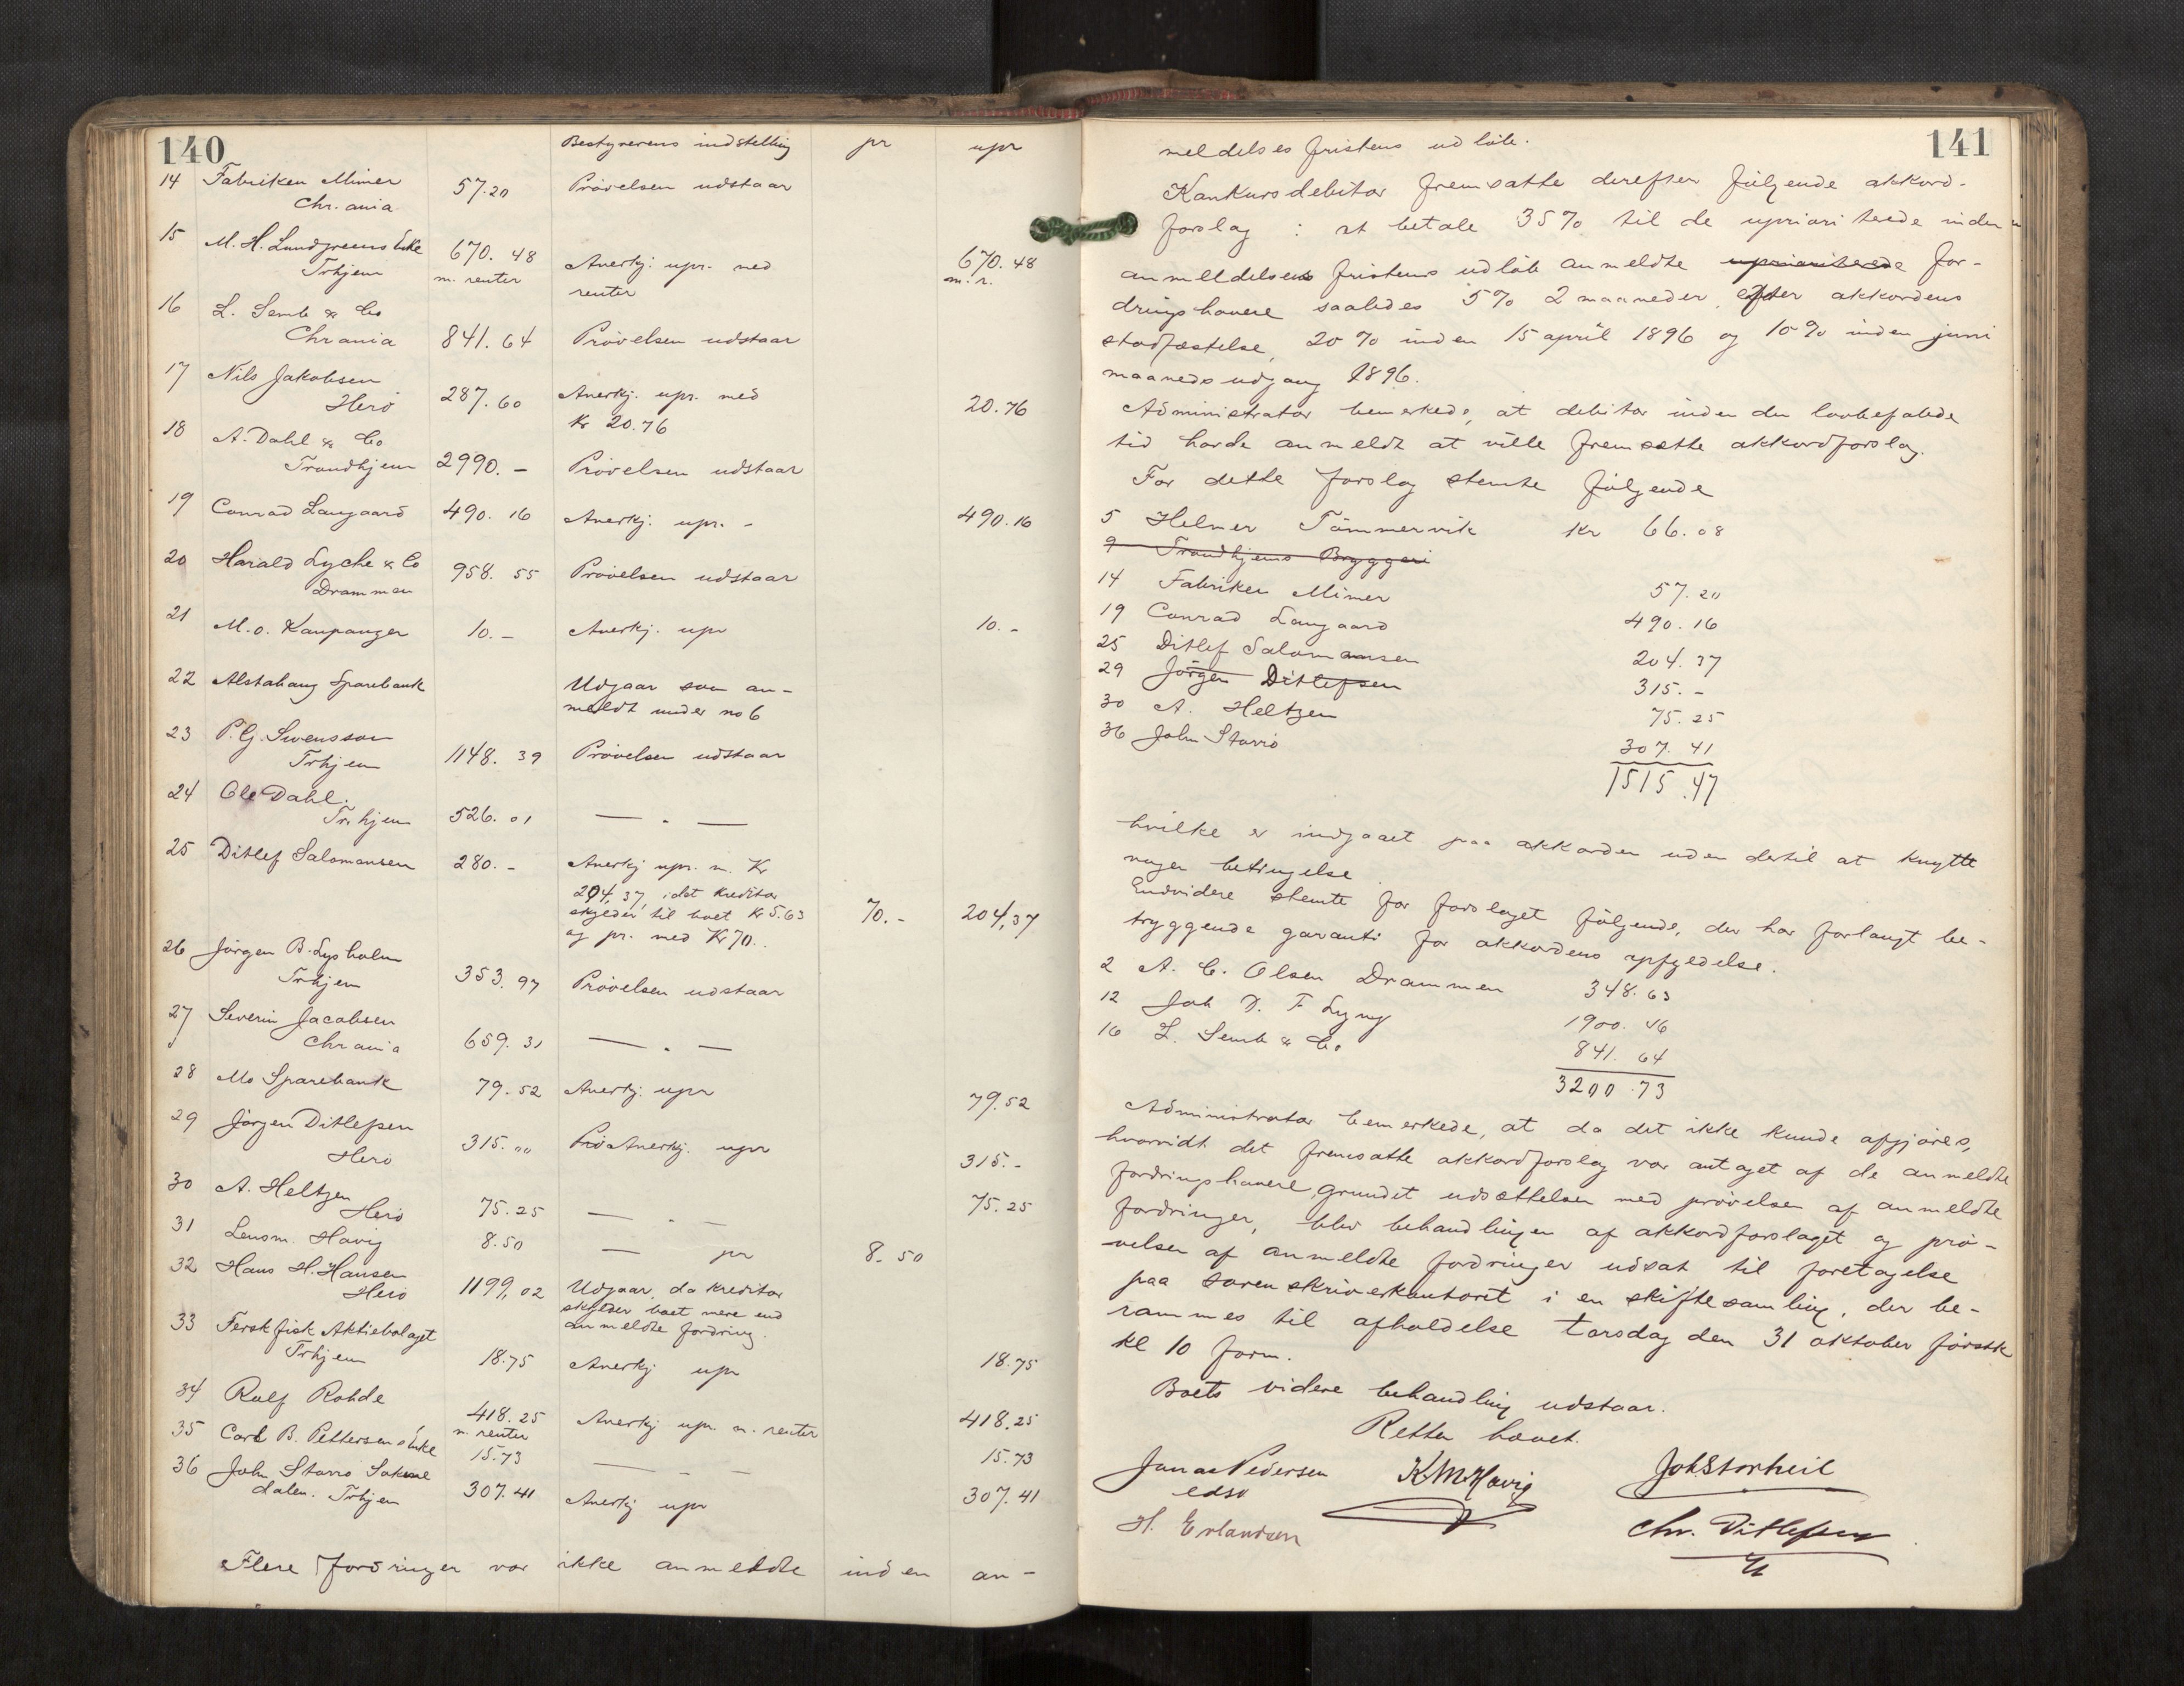 140
Bestyrerens indstilling pr upr
14 Fabriken Mimer 57.20 Prövelsen udstaar
Chr.ania
15 M. H. Lundgreens Enke 670. 48 Anerkj. upr. med 670.48
Trhjem m. renter renter m. r.
16 L. Semb & Co
Chrania 841. 64 Prövelsen udstaar
17 Nils Jakobsen
Herö 287. 60 Anerkj. upr. med 20.76
Kr 20.76
18 A. Dahl & Co
Trondhjem 2990. - Prövelsen udstaar
19 Conrad Langaard 490. 16 Anerkj. upr. - 490.16
20 Harald Lyche & Co 958. 55 Prövelsen udstaar
Drammen
21 M. o. Kaupanger 10. - Anerkj. upr 10. -
22 Alstahaug Sparebank Udgaar som an-
meldt under no 6
23 P. G. Svensson
Trhjem 1148. 39 Prövelsen udstaar
24 Ole Dahl.
Trhjem 526. 01 — " —
25 Ditlef Salomonsen 280. - Anerkj upr. m. Kr
204,37, idet kreditor
skylder til boet Kr 5.63 70. - 204,37
og pr. med Kr 70.
26 Jörgen B. Lysholm
Trhjem 353. 97 Prövelsen udstaar
27 Severin Jacobsen
Chrania 659. 31 — " —
28 Mo Sparebank 79. 52 Anerkj. upr 79.52
29 Jörgen Ditlefsen
Herö 315. 00 Prö Anerkj. upr 315. -
30 A. Heltzen
Herö 75. 25 — " — 75. 25
31 Lensm. Havig 8.50 — pr 8. 50
32 Hans H. Hansen
Herö 1199, 02 Udgaar, da kreditor
skylder boet mere end
anmeldte fordring.
33 Ferskfisk Aktiebolaget
Trhjem 18.75 Anerkj upr 18.75
34 Rolf Rohde 418.25 Anerkj upr. m. renter 418.25
m. renter
35 Carl B. Pettersens Enke 15.73 — " — 15.73
36 John Stavrö Sakse
dalen. Trhjem 307. 41 Anerkj upr 307. 41
Flere fordringer var ikke anmeldte inden an-
141
meldelses fristens udlöb.
Konkursdebitor fremsatte derefter fölgende akkord-
forslag : at betale 35 % til de uprioriterede inden
anmeldelses fristens udlöb anmeldte uprioriterede for-
dringshavere saaledes 5 % 2 maaneder efter akkordens
stadfæstelse, 20 % inden 15 april 1896 og 10 % inden juni
maaneds udgang 1896.
Administrator bemerkede, at debitor inden den lovbefalede
tid havde anmeldt at ville fremsætte akkordforslag.
For dette forslag stemte fölgende
5 Helmer Tömmervik Kr 66. 08
9 Trondhjems Bryggeri
14 Fabriken Mimer 57. 20
19 Conrad Langaard 490. 16
25 Ditlef Salomonsen 204. 37
29 Jörgen Ditlefsen 315. -
30 A. Heltzen 75. 25
36 John Stavrö 307. 41
1515. 47
hvilke er indgaaet paa akkorden uden dertil at knytte
nogen betingelse.
Endvidere stemte for forslaget fölgende, der har forlangt be-
tryggende garanti for akkordens opfyldelse.
2 A. C. Olsen Drammen 348. 63
12 Joh D. F Lyng 1900. 46
16 L. Semb & Co 841. 64
3200. 73
Administrator bemerkede, at da det ikke kunde afgjöres,
hvorvidt det fremsatte akkordforslag var antaget af de anmeldte
fordringshavere, grundet udsættelsen med prövelsen af anmeldte
fordringer, blev behandlingen af akkordforslaget og prö-
velsen af anmeldte fordringer udsat til foretagelse
paa sorenskriverkontoret i en skiftesamling, der be-
rammes til afholdelse torsdag den 31 oktober förstk
kl 10 form.
Boets videre behandling udstaar.
Retten hævet.
Jonas Pedersen K M Havig Joh. Storheil
edsv
H. Erlandsen Chr. Ditlefsen